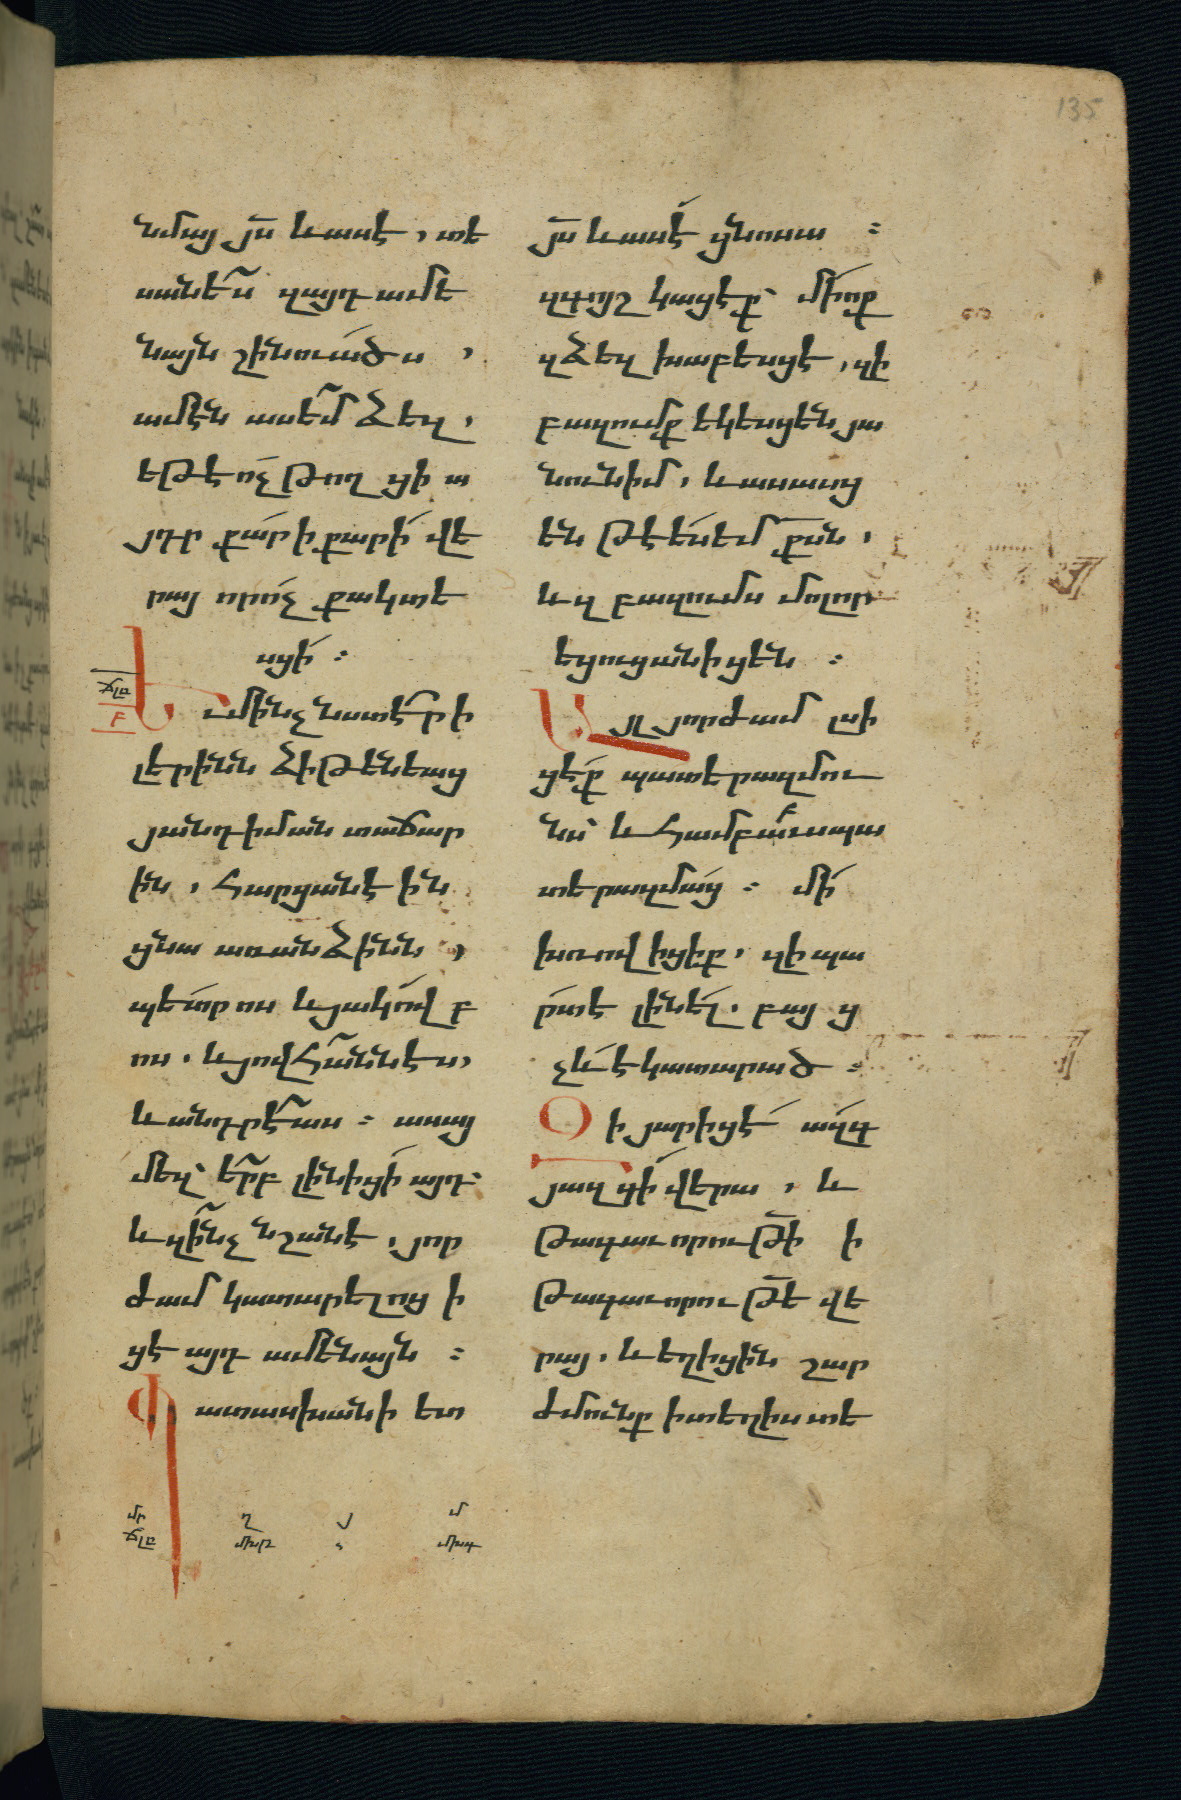 135
նմայ յս̄ ևասէ, տե
սանե՞ս զայդ ամե
նայն շինուածս ,
ամէն ասեմ ձեզ,
եթէ ոչ թող ցի ա
յդր քար ի քարի վե
րայ որոչ քակտե
սցի ։
ճլը
բ
Եւ մինչ նստէր ի
լերինն ձիթենեաց
յանդիման տաճար
ին , հարցանէ ին
ցնա առանձինն ,
պետրոս և յակովբ
ոս. և յովհաննէս,
և անդրէաս ։ ասայ
մեզ՝ երբ լինիցի այդ՝
և զինչ նշանէ, յոր
ժամ կատարելոց ի
ցէ այդ ամենայն ։
Պատասխանի ետ
յս̄ ևասէ ցնոսա ։
զգոյշ կացէք՝ մի ոք
զձեզ խաբեսցէ, զի
բազումք եկեսցեն յա
նուն իմ, և ասասց
են թէ ես եմ քսն̄,
և զբազումս մոլոր
եցուցանիցեն ։
Այլ յորժամ լսի
ցէք պատերազմու
նս՝ և համբաւս պա
տերազմաց ։ մի
խռովիցիք, զի պա
րտէ լինել. բայ ց
չև է կատարած ։
Զի յարիցէ ազգ
յազգի վերա , և
թագաւորութի̄ ի
թագաւորութե̄ վե
րայ. և եղիցին շար
ժմունք ի տեղիս տե
մր ղ յ մ
ճլը